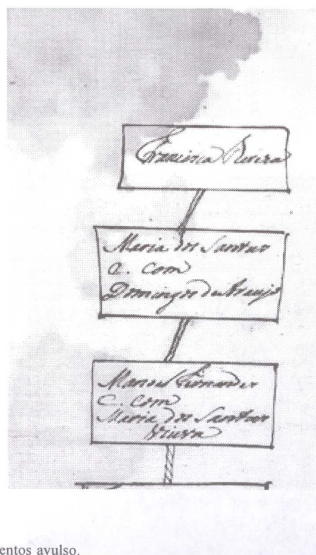 Francisca Vieira
Maria dos Santos
C. com
Domingos de Araujo
Manoel Fernandes
C. com
Maria dos Santos
Vieira
entos avulso.